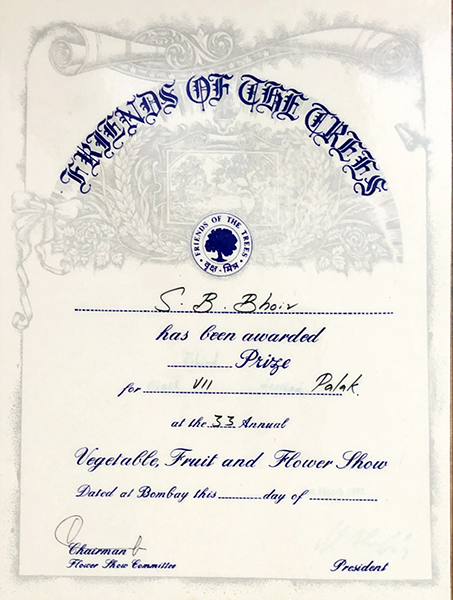 FRIENDS OF THE TREES
FRIENDS OF THE TREES
वृक्ष-मित्र
S. B. Bhoir
has been awarded
Prize
for VII Palak.
at the 33 Annual
Vegetable, Fruit and Flower Show
Dated at Bombay this day of
Chairman
Flower Show Committee
President